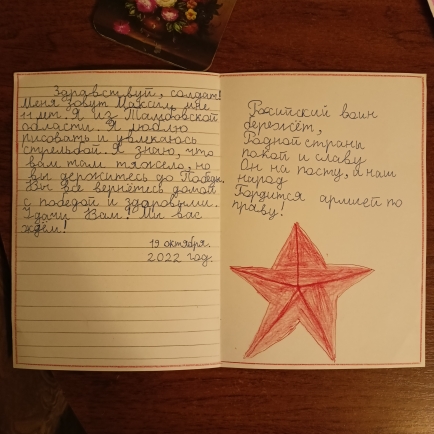 Здравствуй, солдат!
Меня зовут Максим, мне
11 лет. Я из Тамбовской
области. Я люблю
рисовать и увлекаюсь
стрельбой. Я знаю, что
вам там тяжело, но
вы держитесь до Победы.
Вы все вернётесь домой
с победой и здоровыми.
Удачи Вам! Мы вас
ждём!
19 октября.
2022 год.
Российский воин
бережёт,
Родной страны
покой и славу
Он на посту, а наш
народ
Гордится армией по
праву!